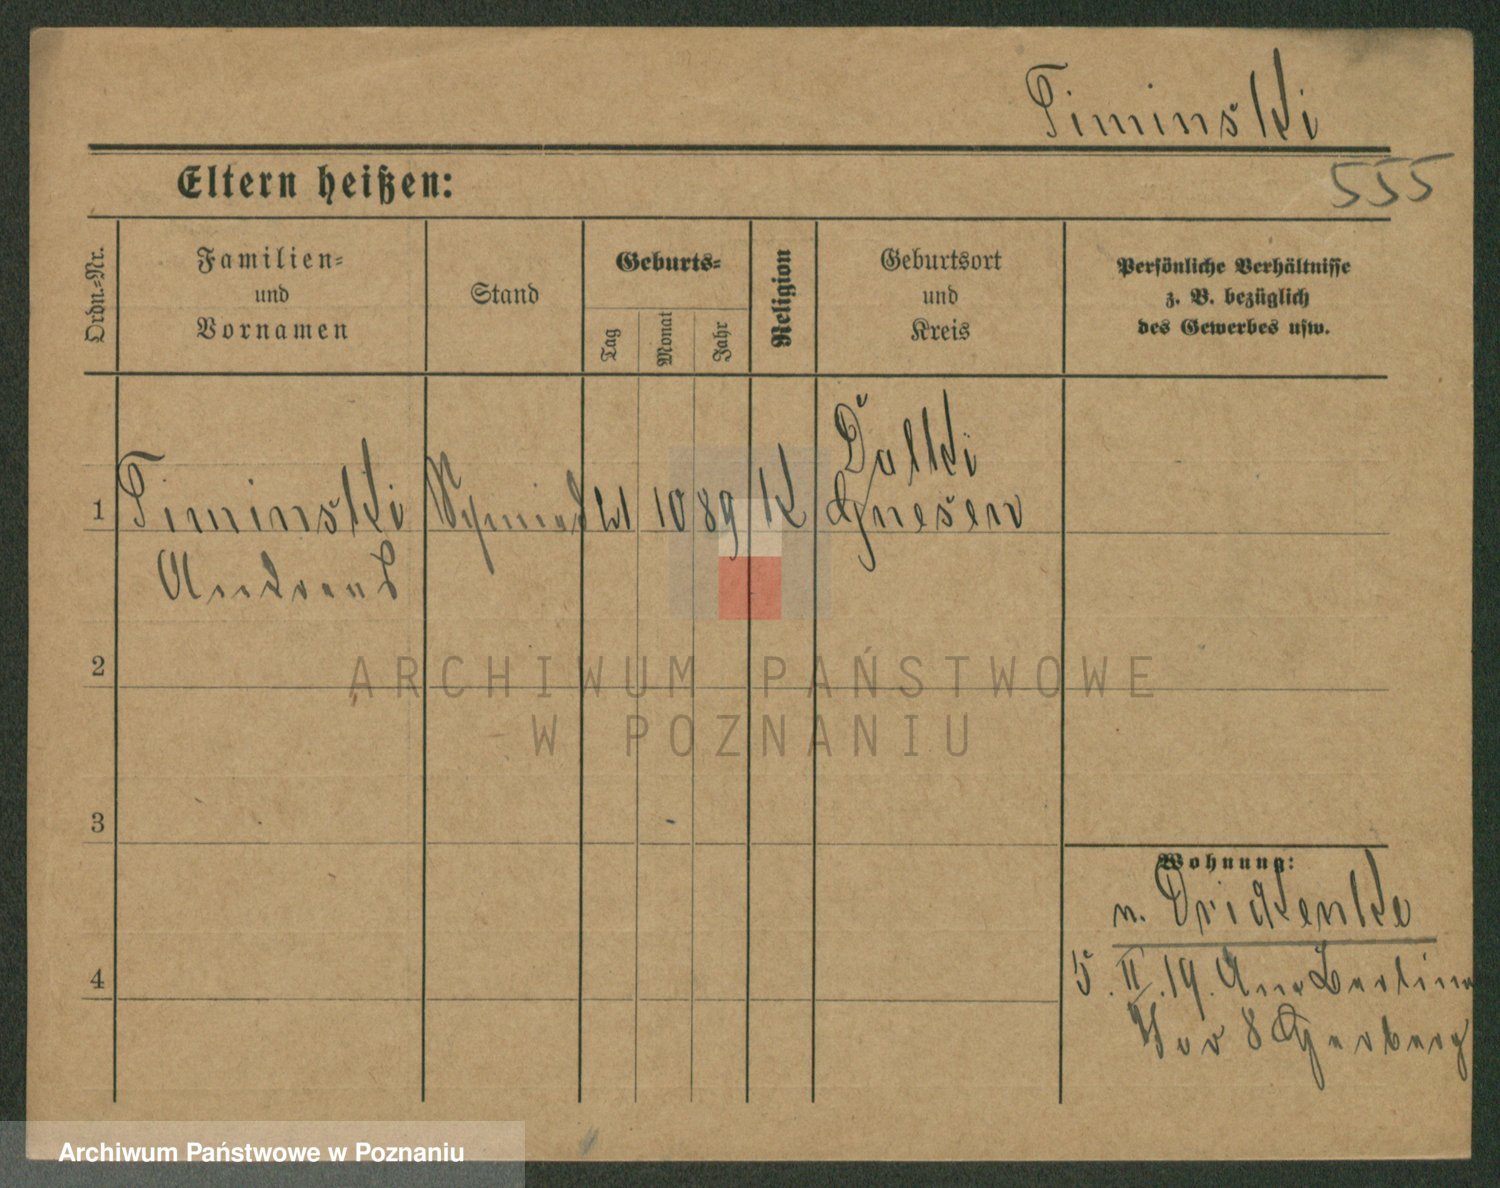 Timinski
555
Eltern heißen:
Ordn.-Nr.
Familien-
und
Vornamen
Stand
Geburts-
Tag
Monat
Jahr
Religion
Geburtsort
und
Kreis
Persönliche Verhältnisse
z. B. bezüglich
des Gewerbes usw.
1
Timinski
Andreas
Schmied
10
89
K
Dalki
Gnesen
2
3
4
ARCHIWUM PAŃSTWOWE
W POZNANIU
Wohnung:
n.
5. II. 19.
Berliner
Tor 8 Gerberg
Archiwum Państwowe w Poznaniu